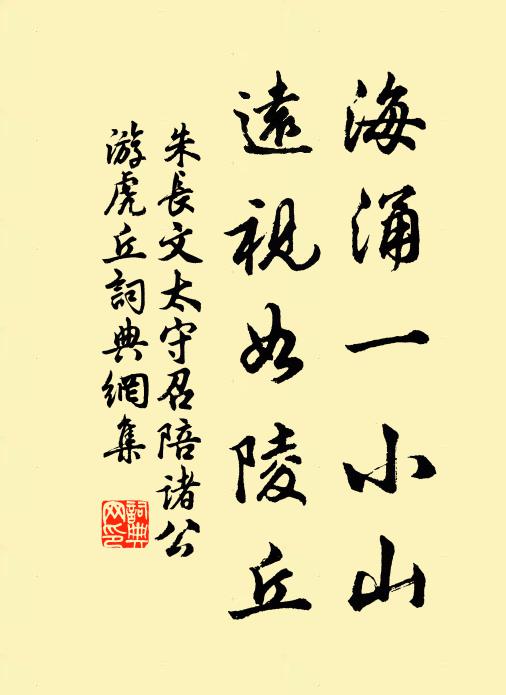 海涌一小山
遠視如陵丘
朱長文太守召陪諸公
游虎丘詞典網集
詞典
网印